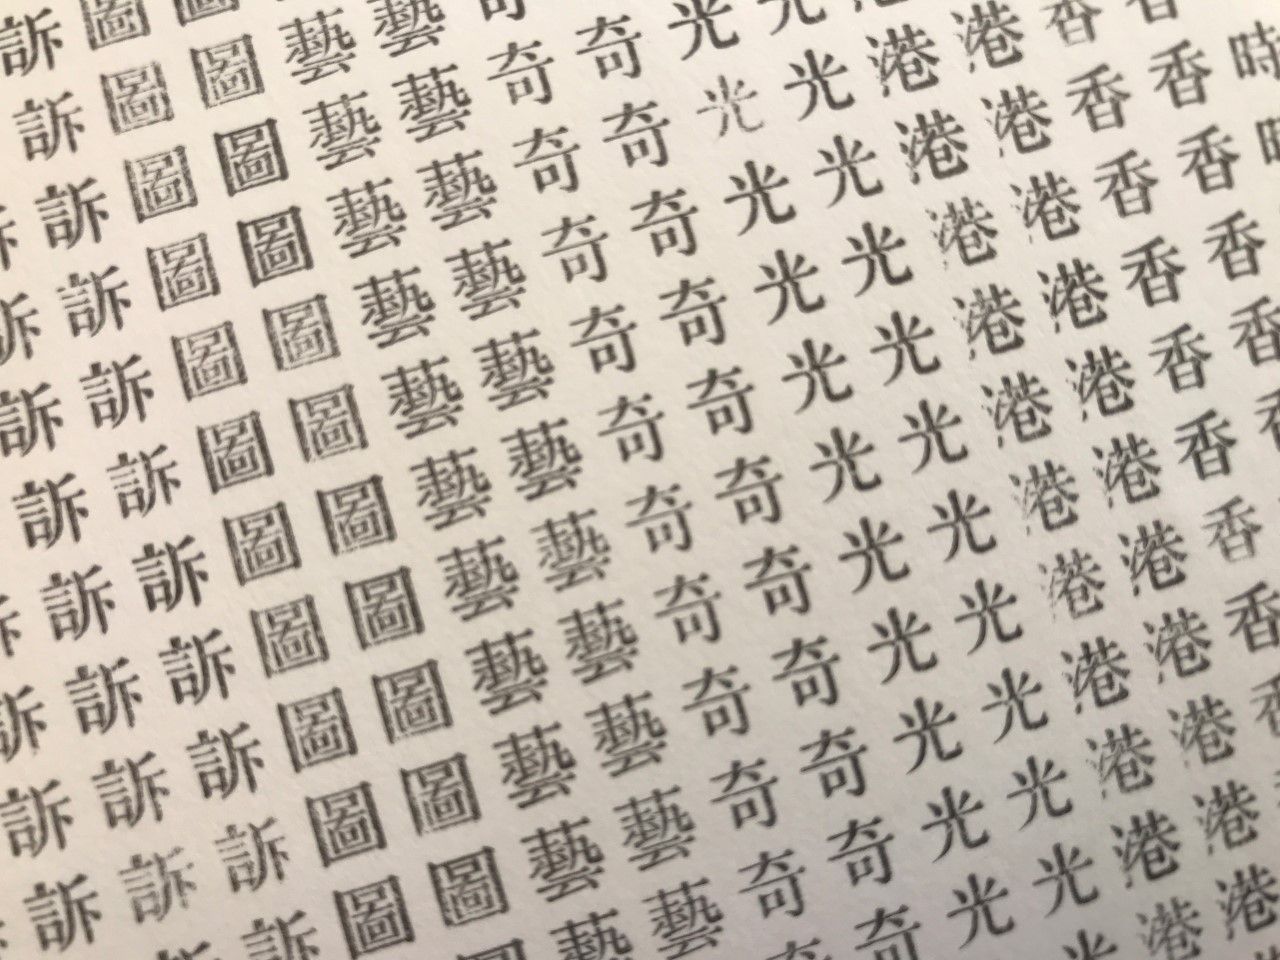 訴圖圖
訴圖圖藝藝奇
訴圖圖藝藝奇奇光光
訴訴圖圖藝藝奇奇光光港港香香
訴訴圖圖藝藝奇奇光光港港香香時
訴訴圖圖藝藝奇奇光光港港香香
訴訴圖圖藝藝奇奇光光港港香香
訴訴訴圖圖藝藝奇奇光光港港香香
訴訴訴圖圖藝藝奇奇光光港港香
訴訴訴圖圖藝藝奇奇光光港港香
訴圖圖藝藝奇奇光光港港香
藝藝奇奇光光港港
奇光光港港
港港